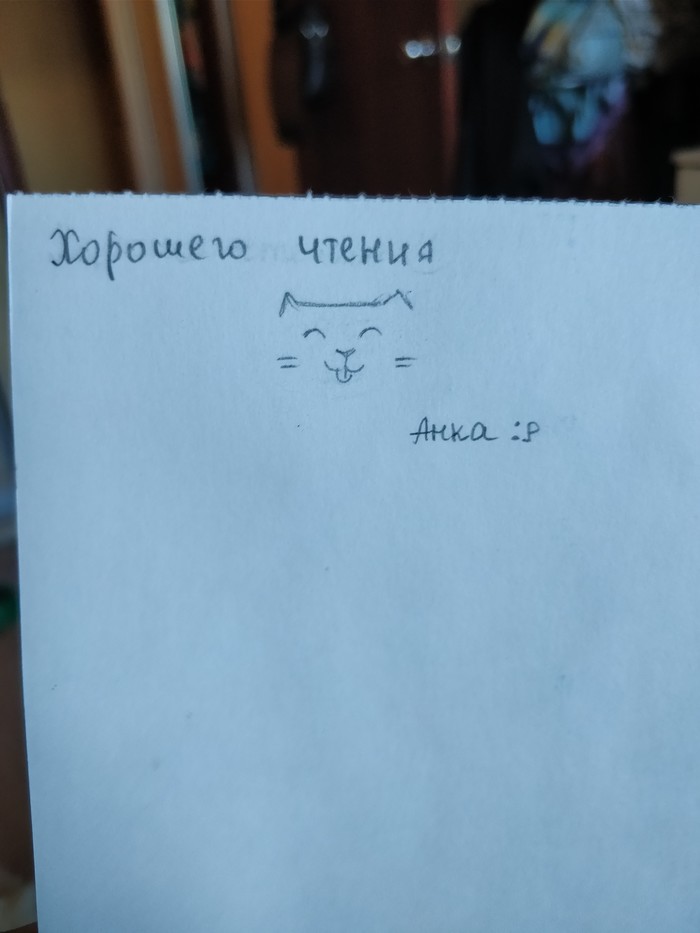 Хорошего чтения
Анка :P